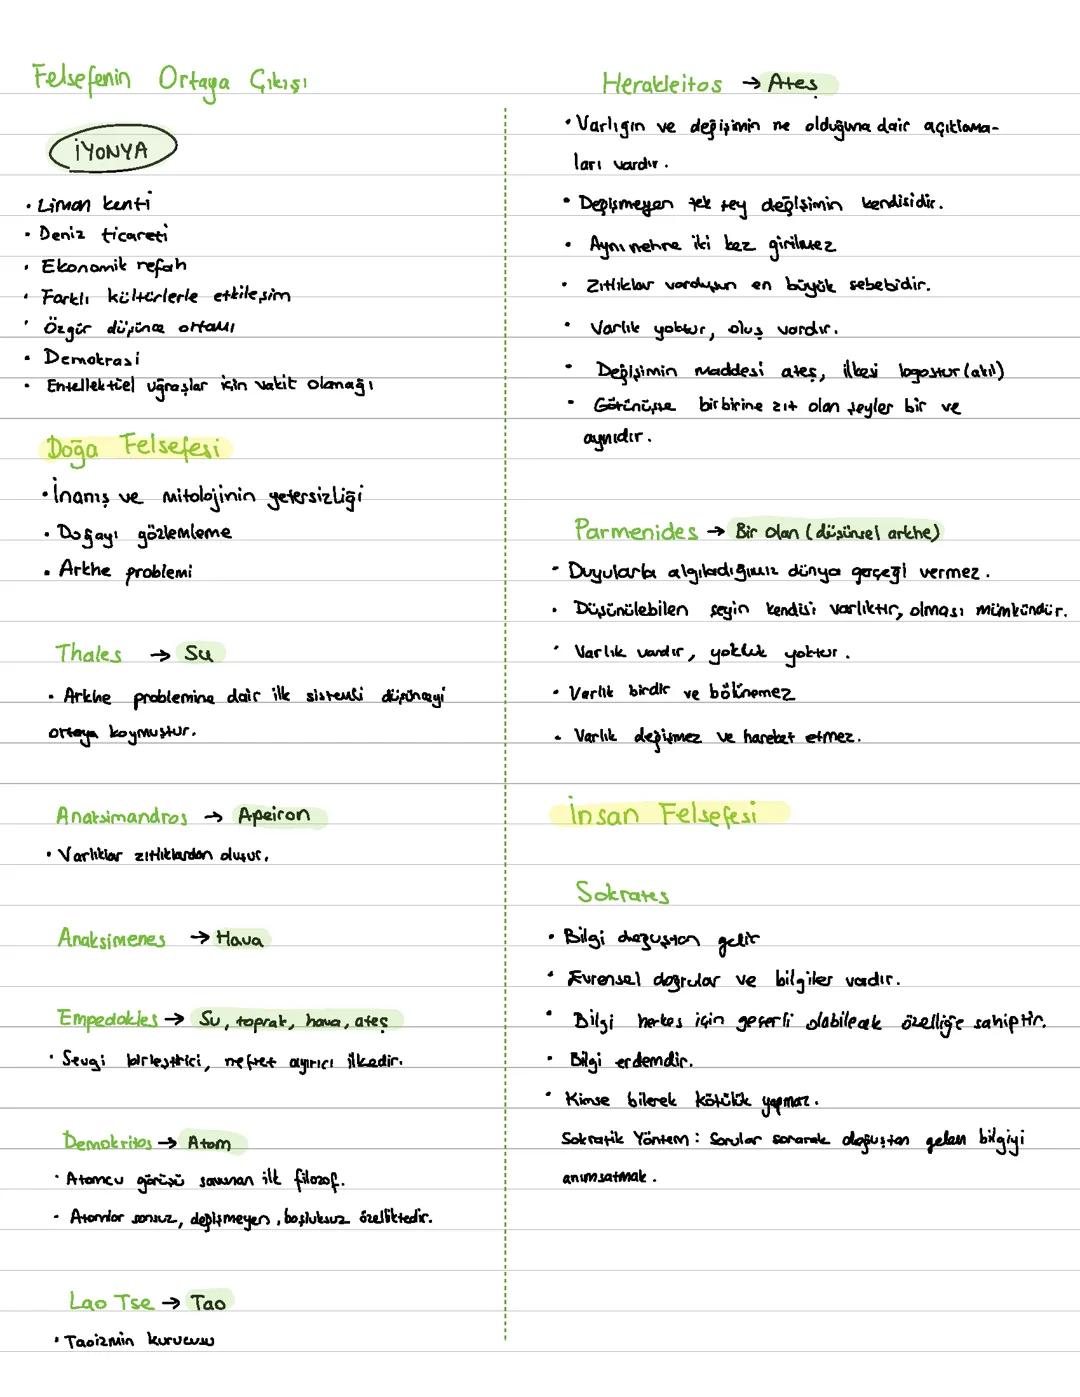 Felsefenin Ortaya Çıkışı
İYONYA
• Liman kenti
• Deniz ticareti
• Ekonomik refah
• Farklı kültürlerle etkileşim
• Özgür düşünce ortamı
• Demokrasi
• Entellektüel uğraşlar için vakit olanağı
Doğa Felsefesi
• İnanış ve mitolojinin yetersizliği
• Doğayı gözlemleme
• Arkhe problemi
Thales → Su
• Arkhe problemine dair ilk sistemli düşünceyi
ortaya koymuştur.
Anaksimandros → Apeiron
• Varlıklar zıtlıklardan oluşur.
Anaksimenes → Hava
Empedokles → Su, toprak, hava, ateş
• Sevgi birleştirici, nefret ayırıcı ilkedir.
Demokritos → Atom
• Atomcu görüşü savunan ilk filozof.
• Atomlar sonsuz, değişmeyen, boşluksuz özelliktedir.
Lao Tse → Tao
• Taoizmin kurucusu
Herakleitos → Ateş
• Varlığın ve değişimin ne olduğuna dair açıklama-
ları vardır.
• Değişmeyen tek şey değişimin kendisidir.
• Aynı nehre iki kez girilmez
• Zıtlıklar varoluşun en büyük sebebidir.
• Varlık yoktur, oluş vardır.
• Değişimin maddesi ateş, ilkesi logostur (akıl)
• Görünüşte birbirine zıt olan şeyler bir ve
aynıdır.
Parmenides → Bir Olan (düşünsel arkhe)
• Duyularla algıladığımız dünya gerçeği vermez.
• Düşünülebilen şeyin kendisi varlıktır, olması mümkündür.
• Varlık vardır, yokluk yoktur.
• Varlık birdir ve bölünemez
• Varlık değişmez ve hareket etmez.
İnsan Felsefesi
Sokrates
• Bilgi doğuştan gelir
• Evrensel doğrular ve bilgiler vardır.
• Bilgi herkes için geçerli olabilecek özelliğe sahiptir.
• Bilgi erdemdir.
• Kimse bilerek kötülük yapmaz.
Sokratik Yöntem: Sorular sorarak doğuştan gelen bilgiyi
anımsatmak.